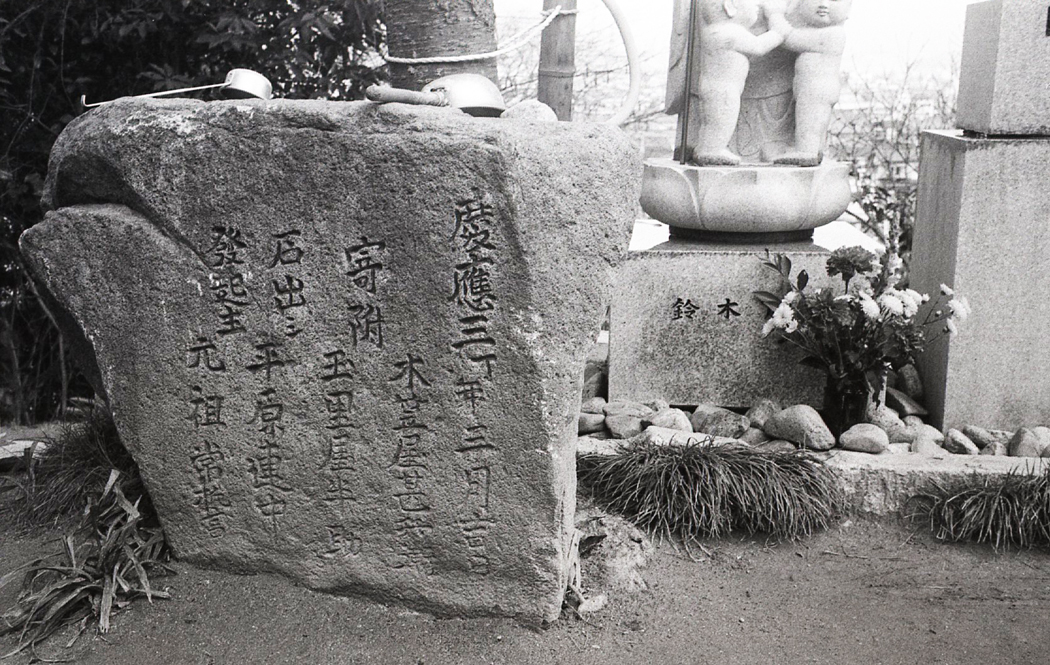 慶應三丁年三月吉日
木笠屋甚兵衛
寄附
玉里屋平助
石出シ 平原連中
發起主 元祖常
鈴木